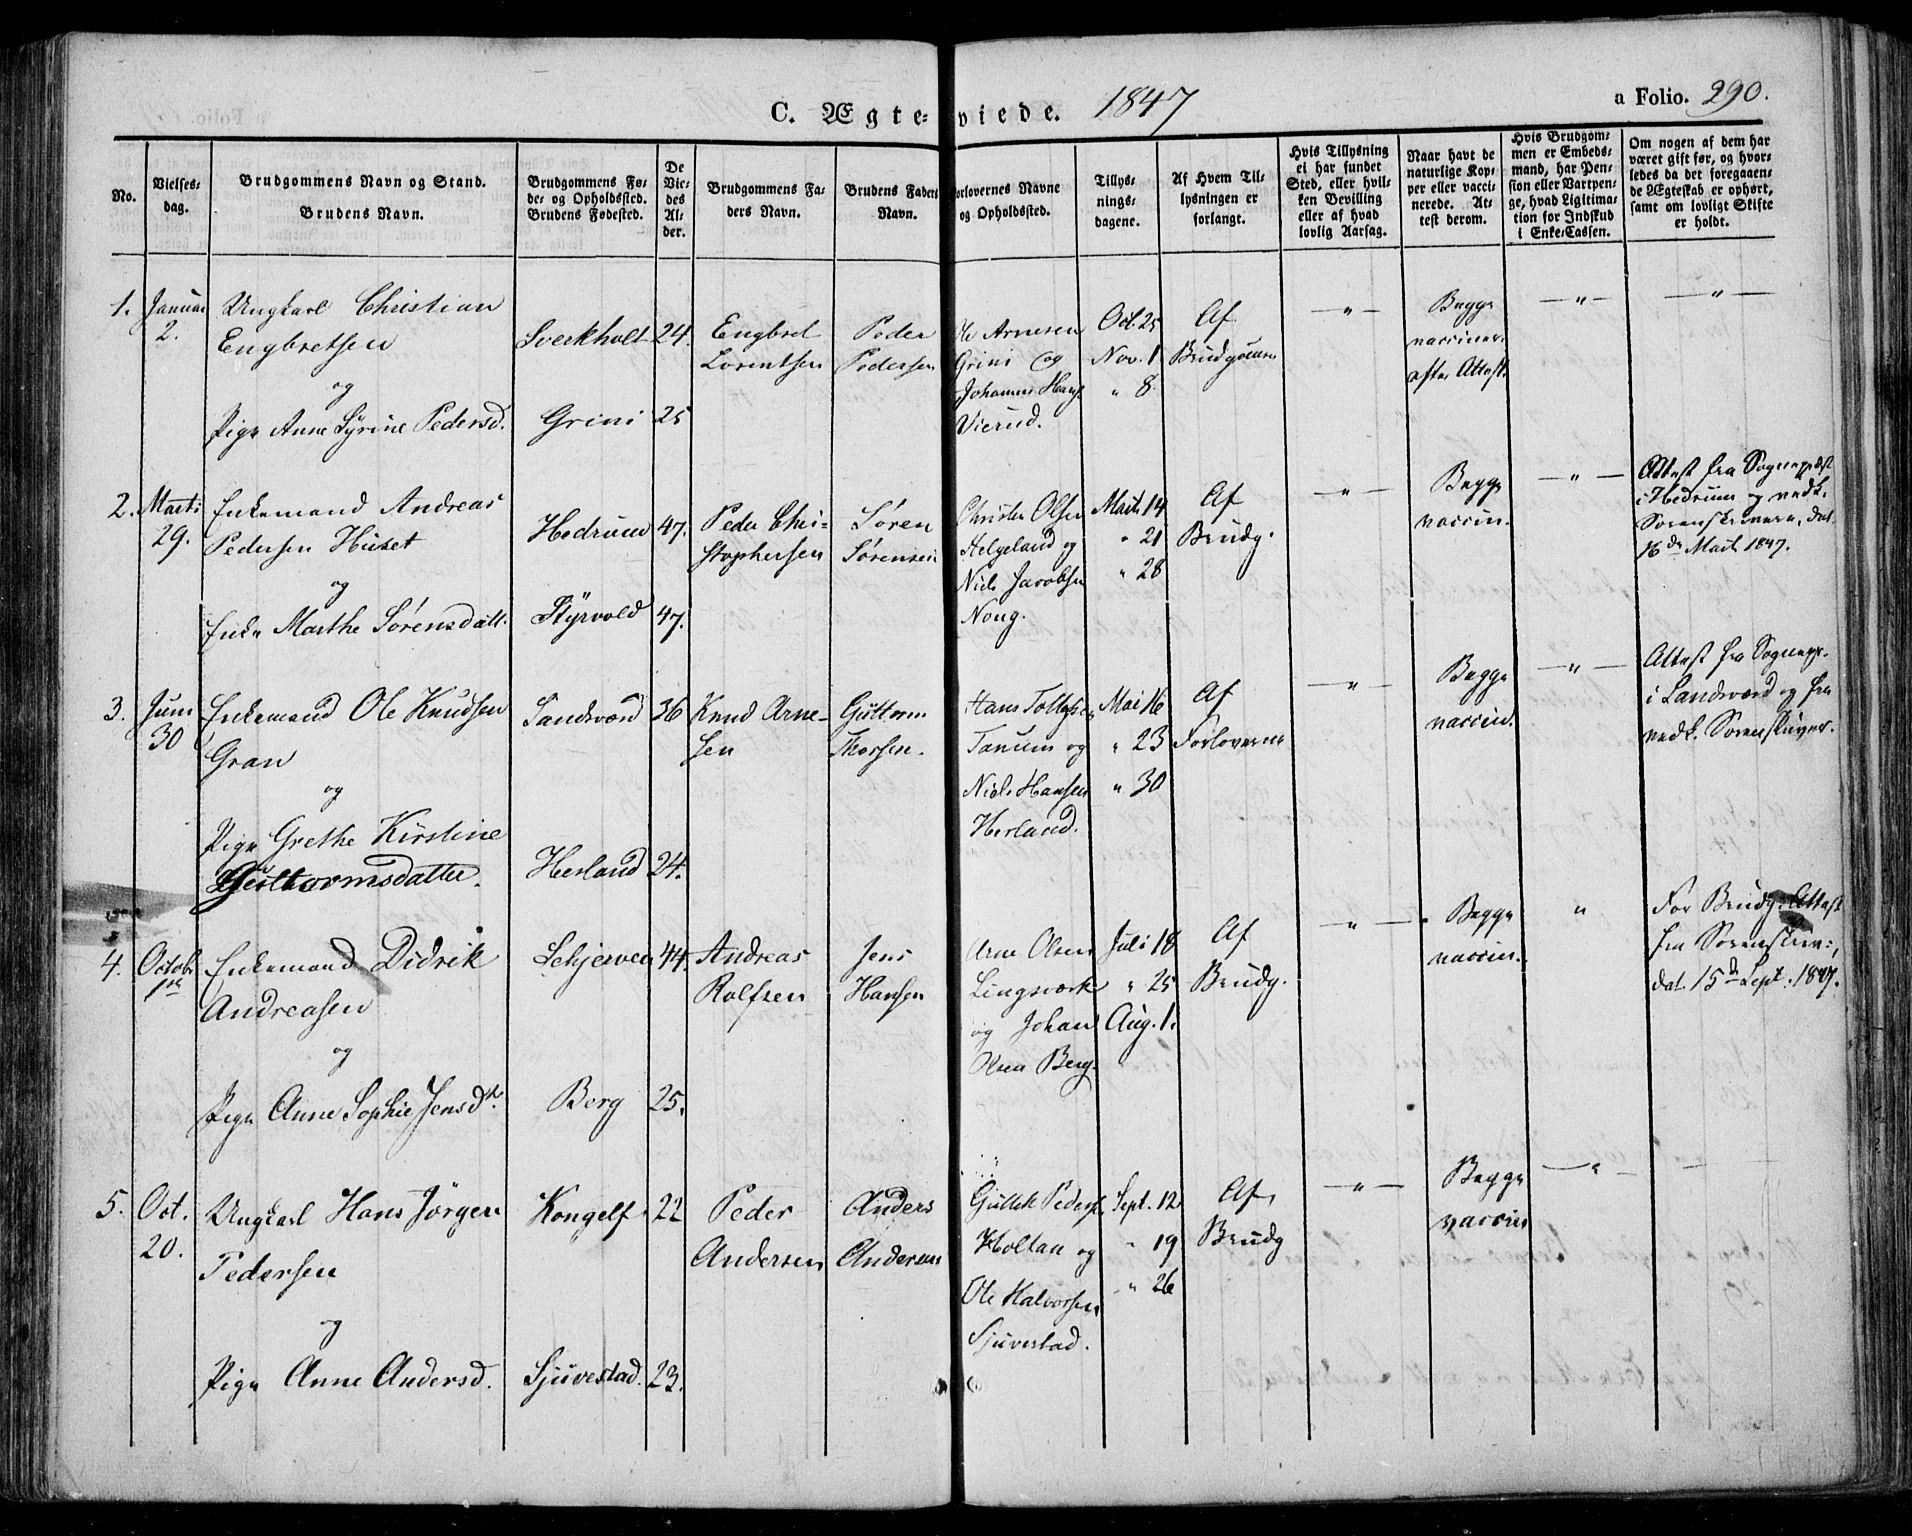 C. Ægteviede. 1847
a Folio. 290.
No.
Vielses-
dag.
Brudgommens Navn og Stand.
Brudens Navn.
Brudgommens Fø-
de- og Opholdssted.
Brudens Fødested.
De
Vie-
des
Al-
der.
Brudgommens Fa-
ders Navn.
Brudens Faders
Navn.
Forlovernes Navne
og Opholdssted.
Tillys-
nings-
dagene.
Af Hvem Til-
lysningen er
forlangt.
Hvis Tillysning
ei har fundet
Sted, eller hvil-
ken Bevilling
eller af hvad
lovlig Aarsag.
Naar havt de
naturlige Kop-
per eller vacci-
nerede. At-
test derom.
Hvis Brudgom-
men er Embeds-
mand, har Pen-
sion eller Vartpen-
ge, hvad Ligitima-
tion for Indskud
i Enke-Cassen.
Om nogen af dem har
været gift før, og hvor-
ledes da det foregaaen-
de Ægteskab er ophørt,
samt om lovligt Skifte
er holdt.
1. Januar
2.
Ungkarl Christian
Engbretsen
og
Pige Anne Syrine Pedersd.
Sverkholt 24.
Grini 25
Engbret
Lorentsen
Peder
Pedersen
Ole Arnesen
Grini og
Johannes Hans.
Vierud.
Oct. 25
Nov. 1
" 8.
Af
Brudgommen
— " —
Begge
vacciner.
efter Attest.
— " —
— " —
2. Marti
29.
Enkemand Andreas
Pedersen Huset
og
Enke Marthe Sørensdatt.
Hedrum 47.
Styrvold 47.
Peder Chri-
stophersen
Søren
Sørensen
Christen Olsen
Helgeland og
Niels Jacobsen
Noug.
Marts 14
" 21
" 28
Af
Brudg.
— " —
Begge
vaccin.
— " —
Attest fra Sognepræst
i Hedrum og vedk.
Sorenskrivere, dat.
16de Marts 1847.
3. Juni
30
Enkemand Ole Knudsen
Gran
og
Pige Grethe Kirstine
Guttormsdatter.
Sandsværd 36
Herland 24.
Knud Arne-
sen
Guttorm
Thorsen.
Hans Tollefsen
Tanum og
Niels Hansen
Herland.
Mai 16
" 23
" 30
Af
Forloverne
— " —
Begge
vaccin.
— " —
Attest fra Sognepr.
i Sandsværd og fra
vedk. Sorenskriver.
4. Octobr.
1ste
Enkemand Didrik
Andreasen
og
Pige Anne Sophie Jensdtr.
Schjerven 44.
Berg 25.
Andreas
Rolfsen
Jens
Hansen
Arne Olsen
Lingsværk
og Johan
Olsen Berg.
Juli 18
" 25
Aug. 1.
Af
Brudg.
— " —
Begge
vaccin.
"
For Brudg. Attest
fra Sorenskriv.,
dat. 15de Sept. 1847.
5. Oct.
20.
Ungkarl Hans Jørgen
Pedersen
og
Pige Anne Andersd.
Kongelf 22
Sjuvestad. 23.
Peder
Andersen
Anders
Andersen
Gullik Peders.
Holtan og
Ole Halvorsen
Sjuvestad.
Sept. 12
" 19
" 26
Af
Brudg
— " —
Begge
vaccin
— " —